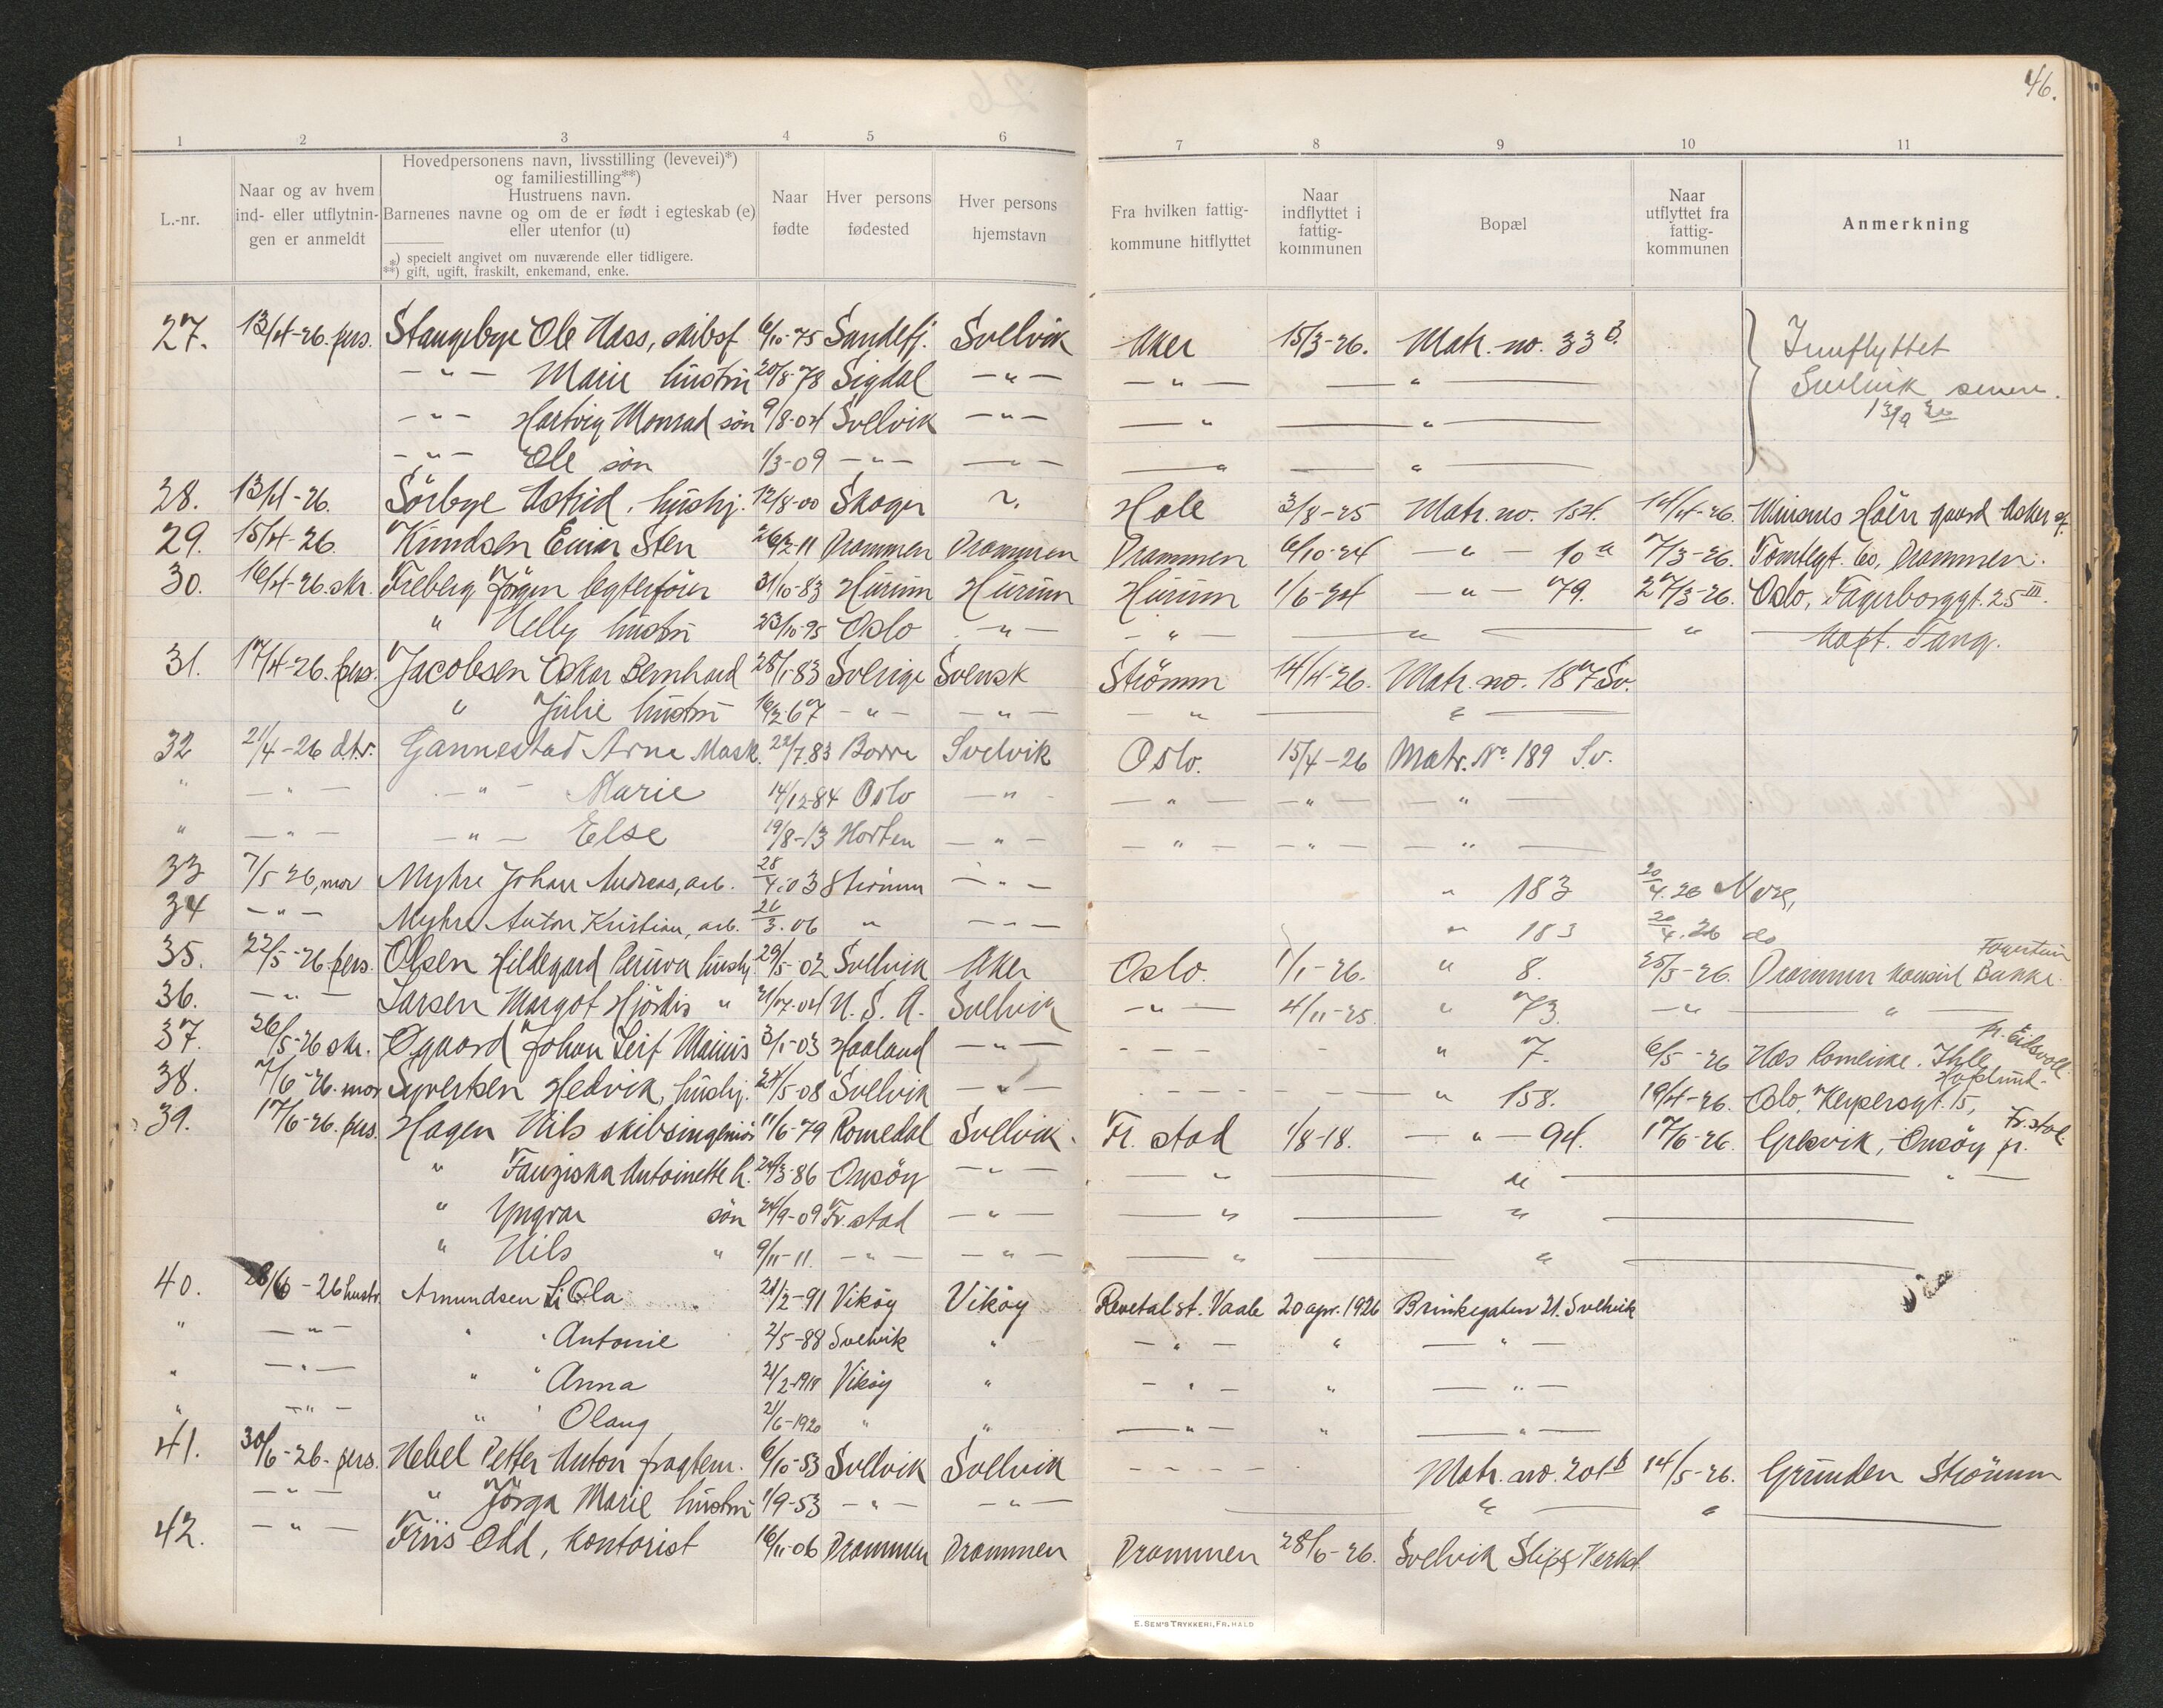 46.
1 2 3 4 5 6 7 8 9 10 11
L.-nr.
Naar og av hvem
ind- eller utflytnin-
gen er anmeldt
Hovedpersonens navn, livsstilling (levevei)*)
og familiestilling**)
Hustruens navn.
Barnenes navne og om de er født i egteskab (e)
eller utenfor (u)
*) specielt angivet om nuværende eller tidligere.
**) gift, ugift, fraskilt, enkemand, enke.
Naar
fødte
Hver persons
fødested
Hver persons
hjemstavn
Fra hvilken fattig-
kommune hitflyttet
Naar
indflyttet i
fattig-
kommunen
Bopæl
Naar
utflyttet fra
fattig-
kommunen
Anmerkning
27. 13/4-26. pers. Stangebye Ole Hass, skibsf 6/10-75 Sandefj. Svelvik Aker 15/3-26. Matr. no. 33 B. Innflyttet
— " — Marie hustru 20/8-78 Sigdal — " — — " — — " — Svelvik senere.
— " — Hartvig Monrad søn 9/8-04 Svelvik — " — — " — — " — 13/9 30
— " — Ole søn 1/3-09 — " — — " — — " — — " —
28. 13/4-26. Sörbye Astrid, hushj. 12/8-00 Skoger ~. Hole 3/8-25 Matr. no. 154. 14/4-26. gaard Asker
29. 15/4-26. Knudsen Einar Sten 26/2-11 Drammen Drammen Drammen 6/10-24 — " — 10 a 7/3-26. Tomtegt. 60, Drammen.
30. 16/4-26. skr. Freberg Jörgen 31/10-83 Hurum Hurum Hurum 1/6-24 — " — 79. 27/3-26. Oslo, Fagerborggt. 25 III.
" Nelly hustru 23/10-95 Oslo — " — — " — — " — " Kapt. Tang.
31. 17/4-26. pers. Jacobsen Oskar Bernhard 28/1-83 Sverige Svensk Strömm 14/4-26. Matr. no. 187 Sv.
" Julie hustru 16/2-67 — " — — " — — " — — " —
32 21/4-26 d.tr. Gannestad Arne Mask. 22/7.83 Borre Svelvik Oslo. 15/4-26 Matr. No 189 Sv.
" — " — — " — Marie 14/12-84 Oslo — " — " — — " — — " —
" — " — — " — Else 19/8-13 Horten — " — — " — — " — — " —
33 7/5 26, mor Myhre Johan Andreas, arb. 28/4.03 Strömm — " — " 183 20/4.26
34 — " — Myhre Anton Kristian, arb. 26/3.06 " — " — " 183 20/4.26 do
35. 22/5-26 pers. Olsen Hildegard hushj. 29/5-02 Svelvik Aker Oslo. 1/1-26. " 8. 25/5-26. Drammen konsul Bakke.
36. — " — Larsen Margot Hjördis " U.S.A. Svelvik — " — 4/11-25. " 73. — " — — " —
37. 26/5-26 skr. Ogaard Johan Leif 3/1-03 Haaland — " — — — — " 7. 6/5-26 Næs Romerike. Ihle
38. 7/6-26. mor Syvertsen Hedvik, hushj. 24/5-08 Svelvik — " — — — — " 158. 19/4-26. Oslo, Keysersgt. 15,
39. 17/6-26. pers. Hagen Nils skibsingeniør 11/6-79 Romedal Svelvik. Fr. stad 1/8-18. — " — 94. 17/6-26. Gresvik, Onsøy pr. Fr.stad
" Antoinette h. 24/3-86 Onsøy — " — — " — " — " —
" Yngvar søn 24/9-09 Fr. stad — " — — " — "
" Nils " 9/11-11. — " — — " — — " — "
40. 28/6-26 hustr. Amundsen Ola 21/2-91 Vikøy Vikøy Revetal st. Vaale 20 apr. 1926 Brinkegaten 21. Svelvik
" — " — " " Antonie 2/5-88 Svelvik " — " — " — " —
" — " — " " Anna 21/2-1918 Vikøy " — " — " — " —
" — " — " " Olaug 21/6-1920 " " — " — " — " —
41. 30/6-26- pers. Hebel Petter Anton fragtem. 6/10-53 Svelvik Svelvik — — — Matr. no. 201 B 14/5-26. Grunden Strömm
— " — " Jörga Marie hustru 1/9-53 — " — — " — " "
42. — " — Friis Odd, kontorist 16/11-06 Drammen Drammen Drammen 28/6-26. Svelvik Slip & Verkst.
E. SEM'S TRYKKERI, FR.HALD